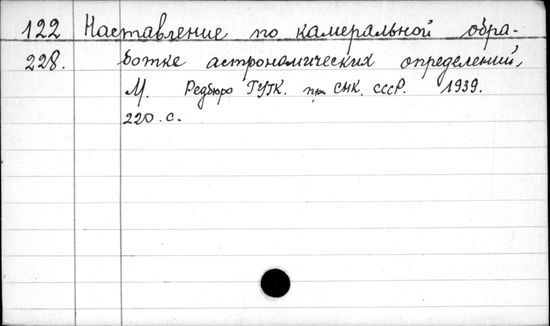 122 Наставление по камеральной обра-
228. ботке астрономических определений,
М. Редбюро ГУГК. при СНК. СССР. 1939.
220. с.